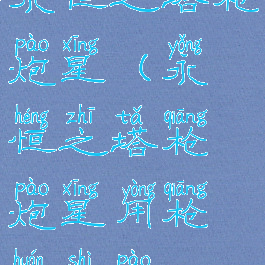 永恒之塔枪
pào xīng yǒng
炮星（永
héng zhī tǎ qiāng
恒之塔枪
pào xīng yòng qiāng
炮星用枪
huán shì pào